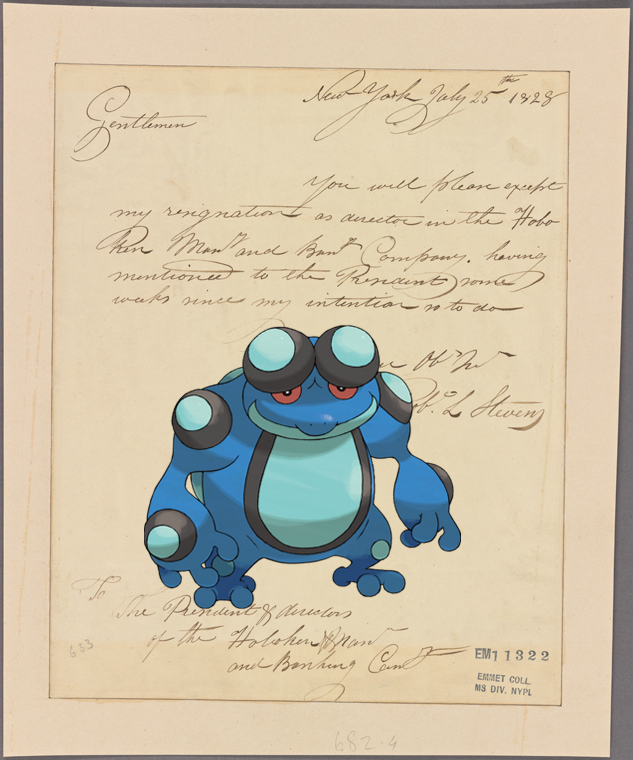 New York July 25th 1828
Gentlemen
You will please except
my resignation as director in the Hobo
ken Mang and Bang Company. having
mentioned to the President some
weeks since my intention so to do
Obt
Robt L Stevens
To
The President & directors
of the Hoboken
and Banking Com
683
EM11322
EMMET COLL.
MS DIV. NYPL
682-4